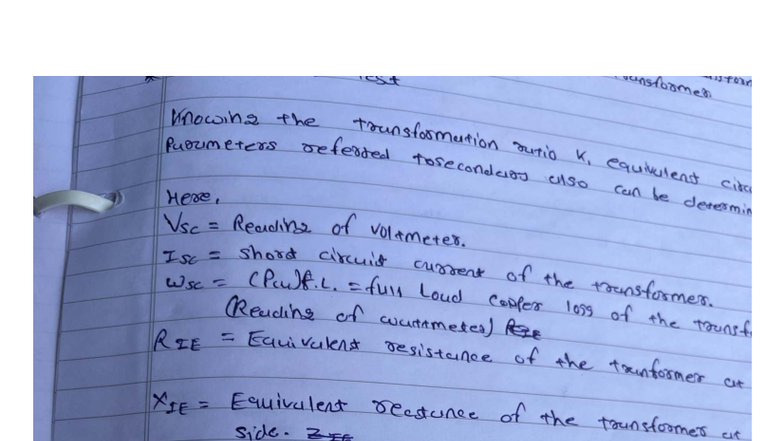 Test
transformer.
Knowing the transformation ratio K, equivalent
Parameters referred tosecondary also can be
Here,
Vsc = Reading of voltmeter.
Isc = short circuit current of the transformer.
Wsc = (Pcu)f.L. = full Load copper loss of the
(Reading of wattmeter)
R1E = Equivalent resistance of the tranformer at
X1E = Equivalent reactance of the transformer at
side.